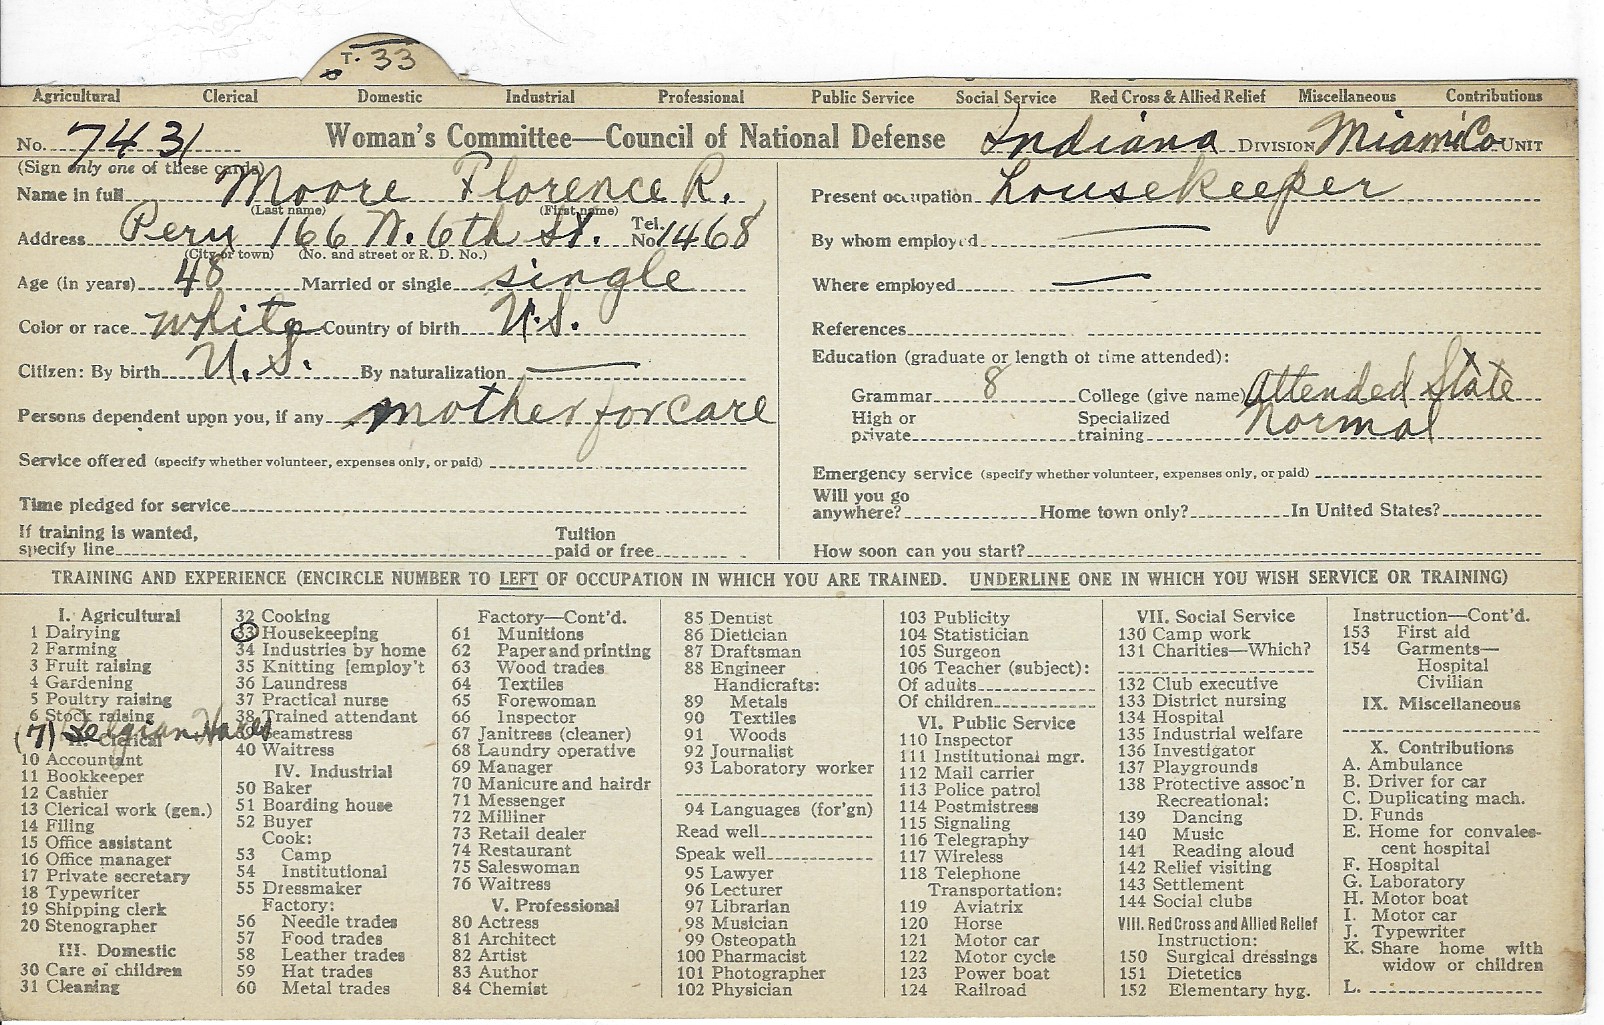 T. 33
Agricultural Clerical Domestic Industrial Professional Public Service Social Service Red Cross & Allied Relief Miscellaneous Contributions
No. 7431 Woman's Committee—Council of National Defense Indiana DIVISION Miami Co UNIT
(Sign only one of these cards)
Name in full Moore Florence R.
(Last name) (First name)
Address Peru 166 W. 6th St. Tel. No. 1468
(City or town) (No. and street or R. D. No.)
Age (in years) 48 Married or single single
Color or race white Country of birth U.S.
Citizen: By birth U.S. By naturalization —
Persons dependent upon you, if any mother for care
Service offered (specify whether volunteer, expenses only, or paid)
Time pledged for service
If training is wanted,
specify line Tuition paid or free
Present occupation housekeeper
By whom employed —
Where employed —
References
Education (graduate or length of time attended):
Grammar 8 College (give name) Attended State
High or private Specialized training Normal
Emergency service (specify whether volunteer, expenses only, or paid)
Will you go
anywhere? Home town only? In United States?
How soon can you start?
TRAINING AND EXPERIENCE (ENCIRCLE NUMBER TO LEFT OF OCCUPATION IN WHICH YOU ARE TRAINED. UNDERLINE ONE IN WHICH YOU WISH SERVICE OR TRAINING)
I. Agricultural
1 Dairying
2 Farming
3 Fruit raising
4 Gardening
5 Poultry raising
6 Stock raising
(7) Belgian Hares
II. Clerical
10 Accountant
11 Bookkeeper
12 Cashier
13 Clerical work (gen.)
14 Filing
15 Office assistant
16 Office manager
17 Private secretary
18 Typewriter
19 Shipping clerk
20 Stenographer
III. Domestic
30 Care of children
31 Cleaning
32 Cooking
33 Housekeeping
34 Industries by home
35 Knitting [employ't
36 Laundress
37 Practical nurse
38 Trained attendant
39 Seamstress
40 Waitress
IV. Industrial
50 Baker
51 Boarding house
52 Buyer
Cook:
53 Camp
54 Institutional
55 Dressmaker
Factory:
56 Needle trades
57 Food trades
58 Leather trades
59 Hat trades
60 Metal trades
Factory—Cont'd.
61 Munitions
62 Paper and printing
63 Wood trades
64 Textiles
65 Forewoman
66 Inspector
67 Janitress (cleaner)
68 Laundry operative
69 Manager
70 Manicure and hairdr
71 Messenger
72 Milliner
73 Retail dealer
74 Restaurant
75 Saleswoman
76 Waitress
V. Professional
80 Actress
81 Architect
82 Artist
83 Author
84 Chemist
85 Dentist
86 Dietician
87 Draftsman
88 Engineer
Handicrafts:
89 Metals
90 Textiles
91 Woods
92 Journalist
93 Laboratory worker
94 Languages (for'gn)
Read well
Speak well
95 Lawyer
96 Lecturer
97 Librarian
98 Musician
99 Osteopath
100 Pharmacist
101 Photographer
102 Physician
103 Publicity
104 Statistician
105 Surgeon
106 Teacher (subject):
Of adults
Of children
VI. Public Service
110 Inspector
111 Institutional mgr.
112 Mail carrier
113 Police patrol
114 Postmistress
115 Signaling
116 Telegraphy
117 Wireless
118 Telephone
Transportation:
119 Aviatrix
120 Horse
121 Motor car
122 Motor cycle
123 Power boat
124 Railroad
VII. Social Service
130 Camp work
131 Charities—Which?
132 Club executive
133 District nursing
134 Hospital
135 Industrial welfare
136 Investigator
137 Playgrounds
138 Protective assoc'n
Recreational:
139 Dancing
140 Music
141 Reading aloud
142 Relief visiting
143 Settlement
144 Social clubs
VIII. Red Cross and Allied Relief
Instruction:
150 Surgical dressings
151 Dietetics
152 Elementary hyg.
Instruction—Cont'd.
153 First aid
154 Garments—
Hospital
Civilian
IX. Miscellaneous
X. Contributions
A. Ambulance
B. Driver for car
C. Duplicating mach.
D. Funds
E. Home for convales-
cent hospital
F. Hospital
G. Laboratory
H. Motor boat
I. Motor car
J. Typewriter
K. Share home with
widow or children
L.